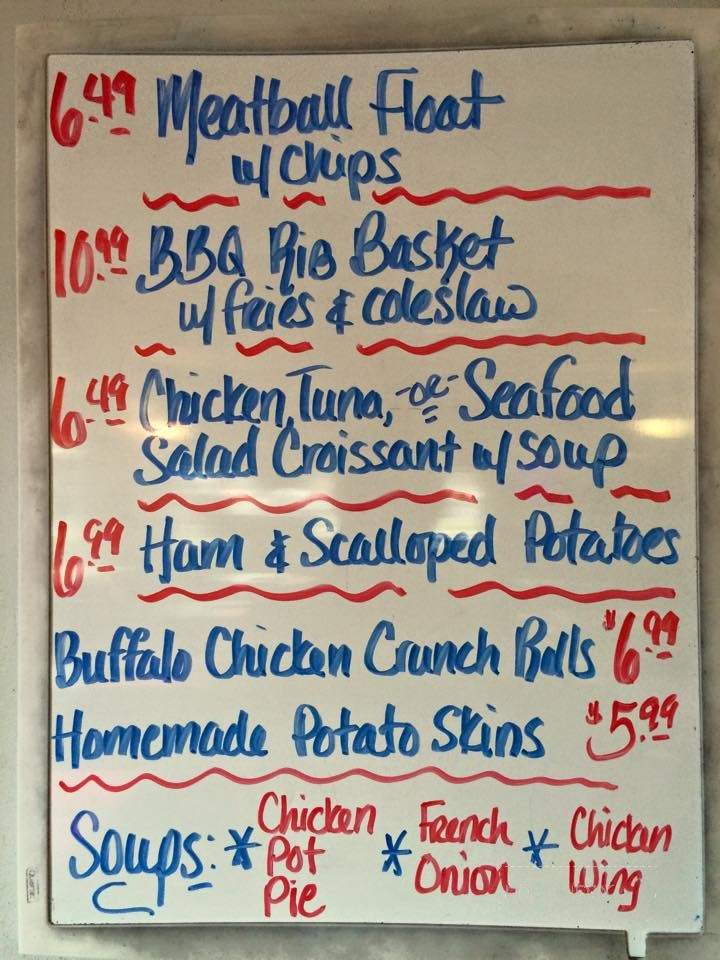 6.49 Meatball Float
w/ chips
10.99 BBQ Rib Basket
w/ fries & coleslaw
6.49 Chicken, Tuna, -or- Seafood
Salad Croissant w/ soup
6.99 Ham & Scalloped Potatoes
Buffalo Chicken Crunch Rolls $6.99
Homemade Potato Skins $5.99
Soups: * Chicken Pot Pie * French Onion * Chicken Wing